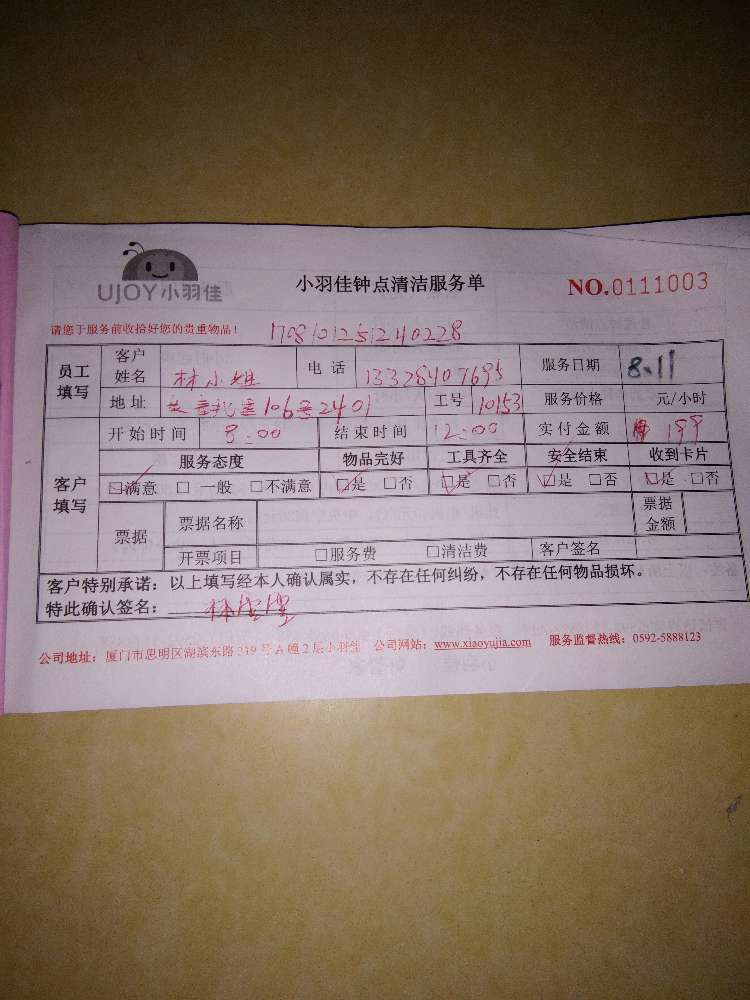 UJOY小羽佳 小羽佳钟点清洁服务单 NO.0111003
请您于服务前收拾好您的贵重物品! 1708101251240228
员工填写 客户姓名 林小姐 电话 13328407695 服务日期 8.11
地址 106 2401 工号 10153 服务价格 元/小时
客户填写 开始时间 8:00 结束时间 12:00 实付金额 199
服务态度 物品完好 工具齐全 安全结束 收到卡片
☑满意 □一般 □不满意 ☑是 □否 ☑是 □否 ☑是 □否 ☑是 □否
票据 票据名称 票据金额
开票项目 □服务费 □清洁费 客户签名
客户特别承诺:以上填写经本人确认属实,不存在任何纠纷,不存在任何物品损坏。
特此确认签名: 林
公司地址:厦门市思明区湖滨东路319号A幢2层小羽佳 公司网站:www.xiaoyujia.com 服务监督热线:0592-5888123